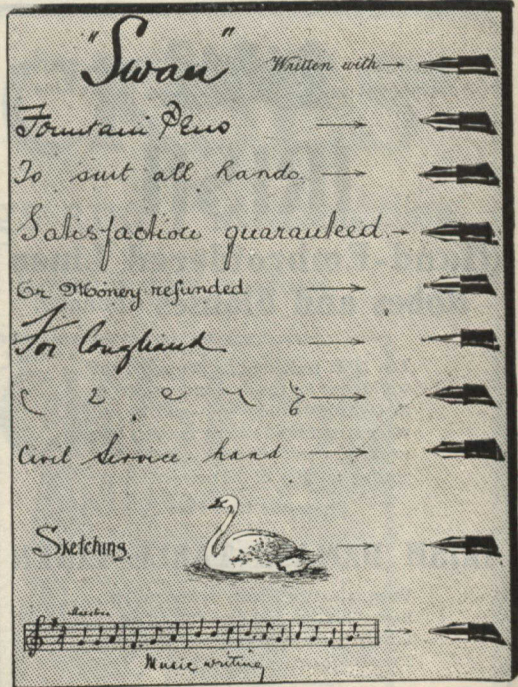 "Swan" Written with
Fountain Pens
To suit all hands.
Satisfaction guaranteed.
Or Money refunded
For Longhand
Civil Service hand
Sketching
Music writing